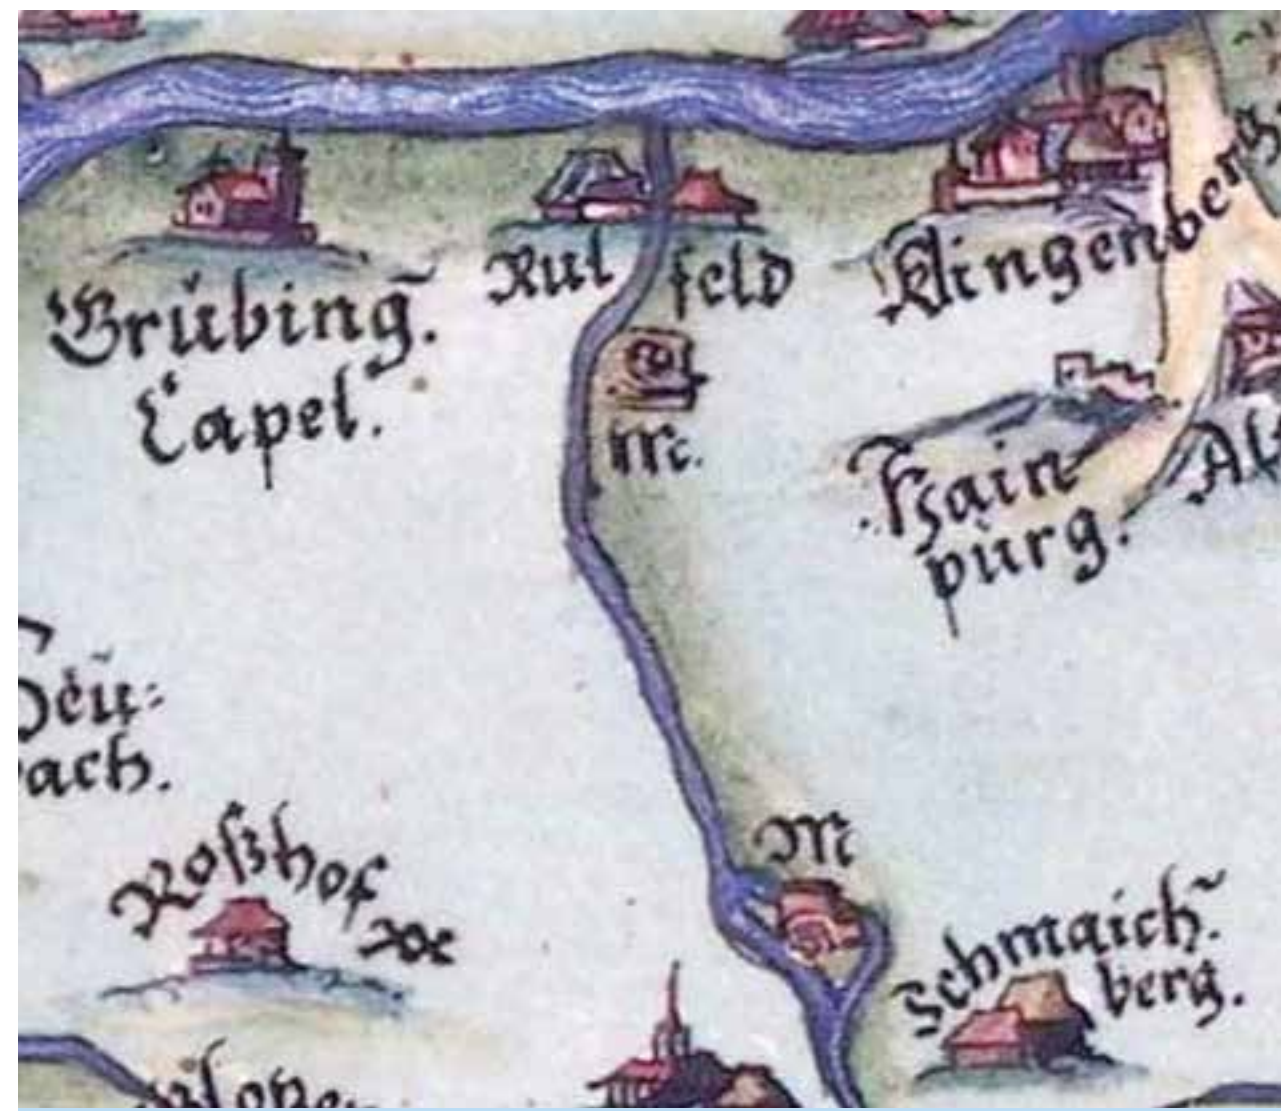 Grübing̃.
Capel.
Rul feld
Klingenberg
M.
Hain
purg.
Al
Seü-
ach.
Roßhof
M
Schmaich̃.
berg.